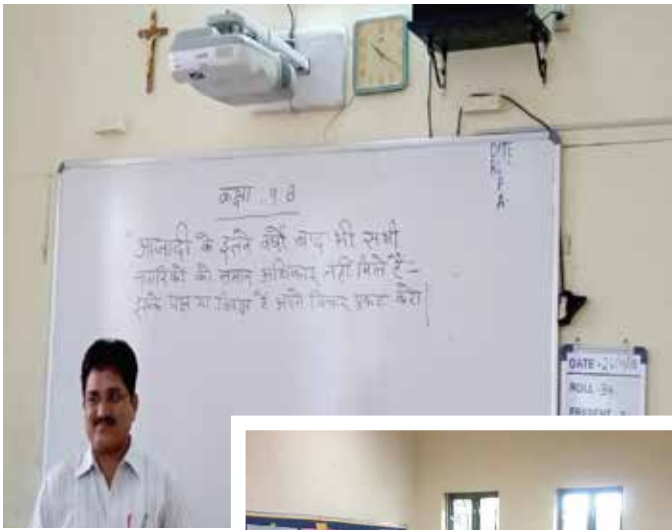 कक्षा . 9 B
"आजादी के इतने वर्षों बाद भी सभी
नागरिकों को समान अधिकार नहीं मिले है -
इसके पक्ष या विपक्ष में अपने विचार प्रकट करो|
P
A
DATE -
ROLL -34
PRESENT -